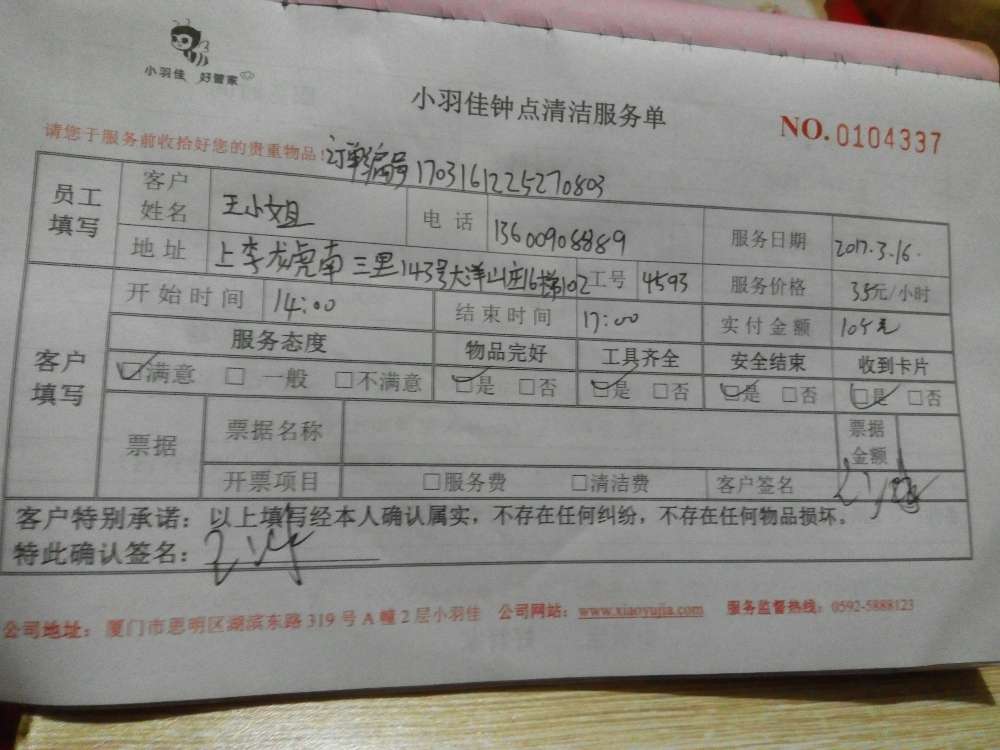 小羽佳 好管家
小羽佳钟点清洁服务单
NO.0104337
请您于服务前收拾好您的贵重物品!
订单编号1703161225270803
员工填写 客户姓名 王小姐 电话 13600908889 服务日期 2017.3.16.
地址 上李龙虎南三里143号大洋山庄16梯102 工号 4593 服务价格 35元/小时
客户填写 开始时间 14:00 结束时间 17:00 实付金额 105元
服务态度 物品完好 工具齐全 安全结束 收到卡片
☑满意 □一般 □不满意 ☑是 □否 ☑是 □否 ☑是 □否 ☑是 □否
票据 票据名称 票据金额
开票项目 □服务费 □清洁费 客户签名
客户特别承诺：以上填写经本人确认属实，不存在任何纠纷，不存在任何物品损坏。
特此确认签名：
公司地址：厦门市思明区湖滨东路319号A幢2层小羽佳 公司网站：www.xiaoyujia.com 服务监督热线：0592-5888123